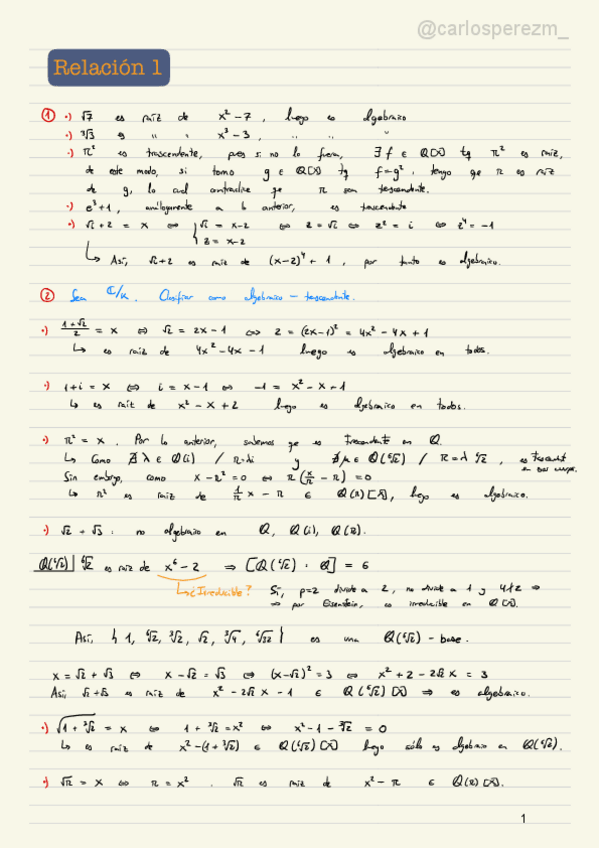 @carlosperezm_
Relación 1
① •) √7 es raíz de x² - 7, luego es algebraico
•) ∛3 es " " x³ - 3, " " "
•) π² es trascendente, pues si no lo fuera, ∃ f ∈ Q[x] tq π² es raíz,
de este modo, si tomo g ∈ Q[x] tq f = g², tengo que π es raíz
de g, lo cual contradice que π sea trascendente.
•) e³ + 1, análogamente a lo anterior, es trascendente
•) √i + 2 = x ⇔ { √i = x - 2 ⇔ z = √i ⇔ z² = i ⇔ z⁴ = -1
z = x - 2
↳ Así, √i + 2 es raíz de (x - 2)⁴ + 1, por tanto es algebraico.
② Sea ℂ/K. Clasificar como algebraico - trascendente.
•) (1 + √2)/2 = x ⇔ √2 = 2x - 1 ⇔ 2 = (2x - 1)² = 4x² - 4x + 1
↳ es raíz de 4x² - 4x - 1 luego es algebraico en todos.
•) 1 + i = x ⇔ i = x - 1 ⇔ -1 = x² - x - 1
↳ es raíz de x² - x + 2 luego es algebraico en todos.
•) π² = x. Por lo anterior, sabemos que es trascendente en Q.
↳ Como ∄ λ ∈ Q(i) / π = λi y ∄ μ ∈ Q(⁶√2) / π = λ ⁶√2, es trascendente
en esos cuerpos.
Sin embargo, como x - π² = 0 ⇔ π(x/π - π) = 0
↳ π² es raíz de 1/π x - π ∈ Q(π)[x], luego es algebraico.
•) √2 + √3 : no algebraico en Q, Q(i), Q(π).
Q(⁶√2)| ⁶√2 es raíz de x⁶ - 2 ⇒ [Q(⁶√2) : Q] = 6
↳ ¿Irreducible? Sí, p=2 divide a 2, no divide a 1 y 4∤2 ⇒
⇒ por Eisenstein, es irreducible en Q[x].
Así, { 1, ⁶√2, ∛2, √2, ∛4, ⁶√32 } es una Q(⁶√2) - base.
x = √2 + √3 ⇔ x - √2 = √3 ⇔ (x - √2)² = 3 ⇔ x² + 2 - 2√2 x = 3
Así, √2 + √3 es raíz de x² - 2√2 x - 1 ∈ Q(⁶√2)[x] ⇒ es algebraico.
•) √(1 + ∛2) = x ⇔ 1 + ∛2 = x² ⇔ x² - 1 - ∛2 = 0
↳ es raíz de x² - (1 + ∛2) ∈ Q(⁶√2)[x] luego sólo es algebraico en Q(⁶√2).
•) √π = x ⇔ π = x². √π es raíz de x² - π ∈ Q(π)[x].
1